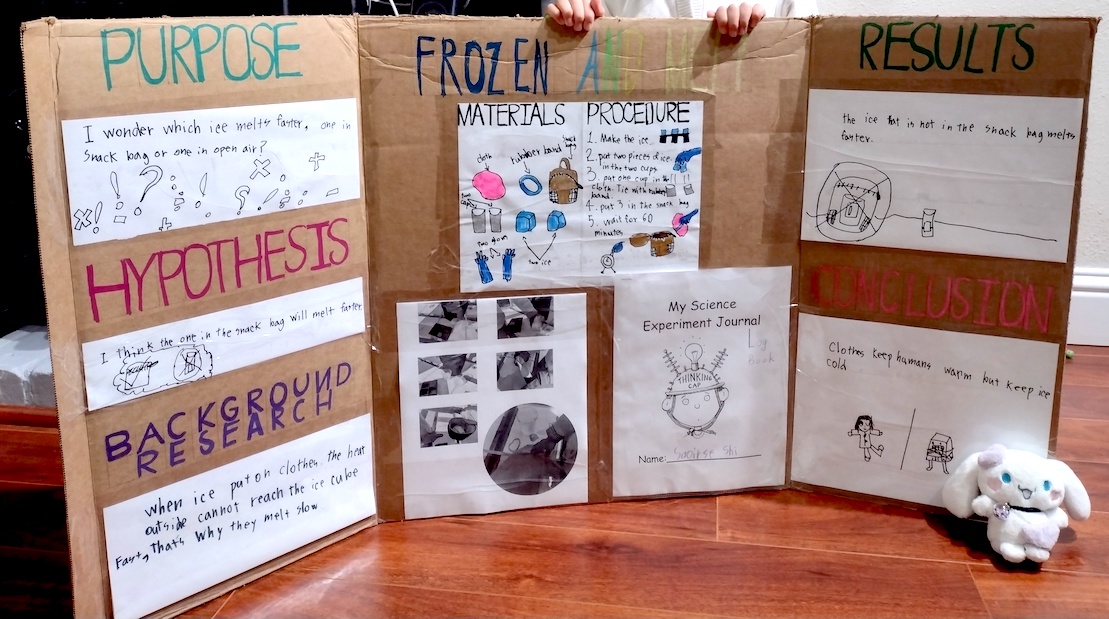 PURPOSE
I wonder which ice melts faster, one in
snack bag or one in open air?
HYPOTHESIS
I think the one in the snack bag will melt faster
BACKGROUND
RESEARCH
when ice put on clothes, the heat
outside cannot reach the ice cube
East, that's why they melt slow
FROZEN AND MELT
MATERIALS
cloth
rubber band
snack
bag
two
cups
two
two ice
PROCEDURE
1. Make the ice
2. put two pieces of ice
in the two cups
3. put one cup in the
cloth. Tie with rubber
band.
4. put 3 in the snack bag
5. wait for 60
minutes
My Science
Experiment Journal
Log
Book
THINKING
CAP
Name:
RESULTS
the ice tat is not in the snack bag melts
faster.
CONCLUSION
Clothes keep humans warm but keep ice
cold